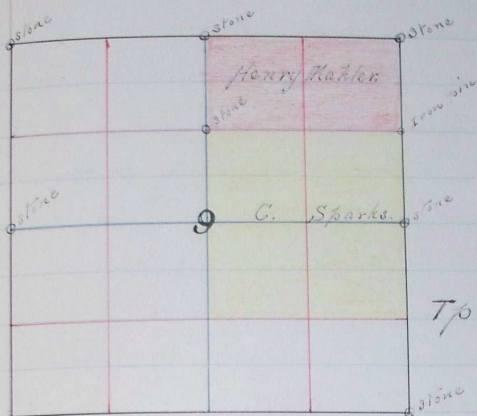 stone
stone
stone
Henry Mahler
stone
Iron pin
stone
9
C. Sparks.
stone
Tp
stone